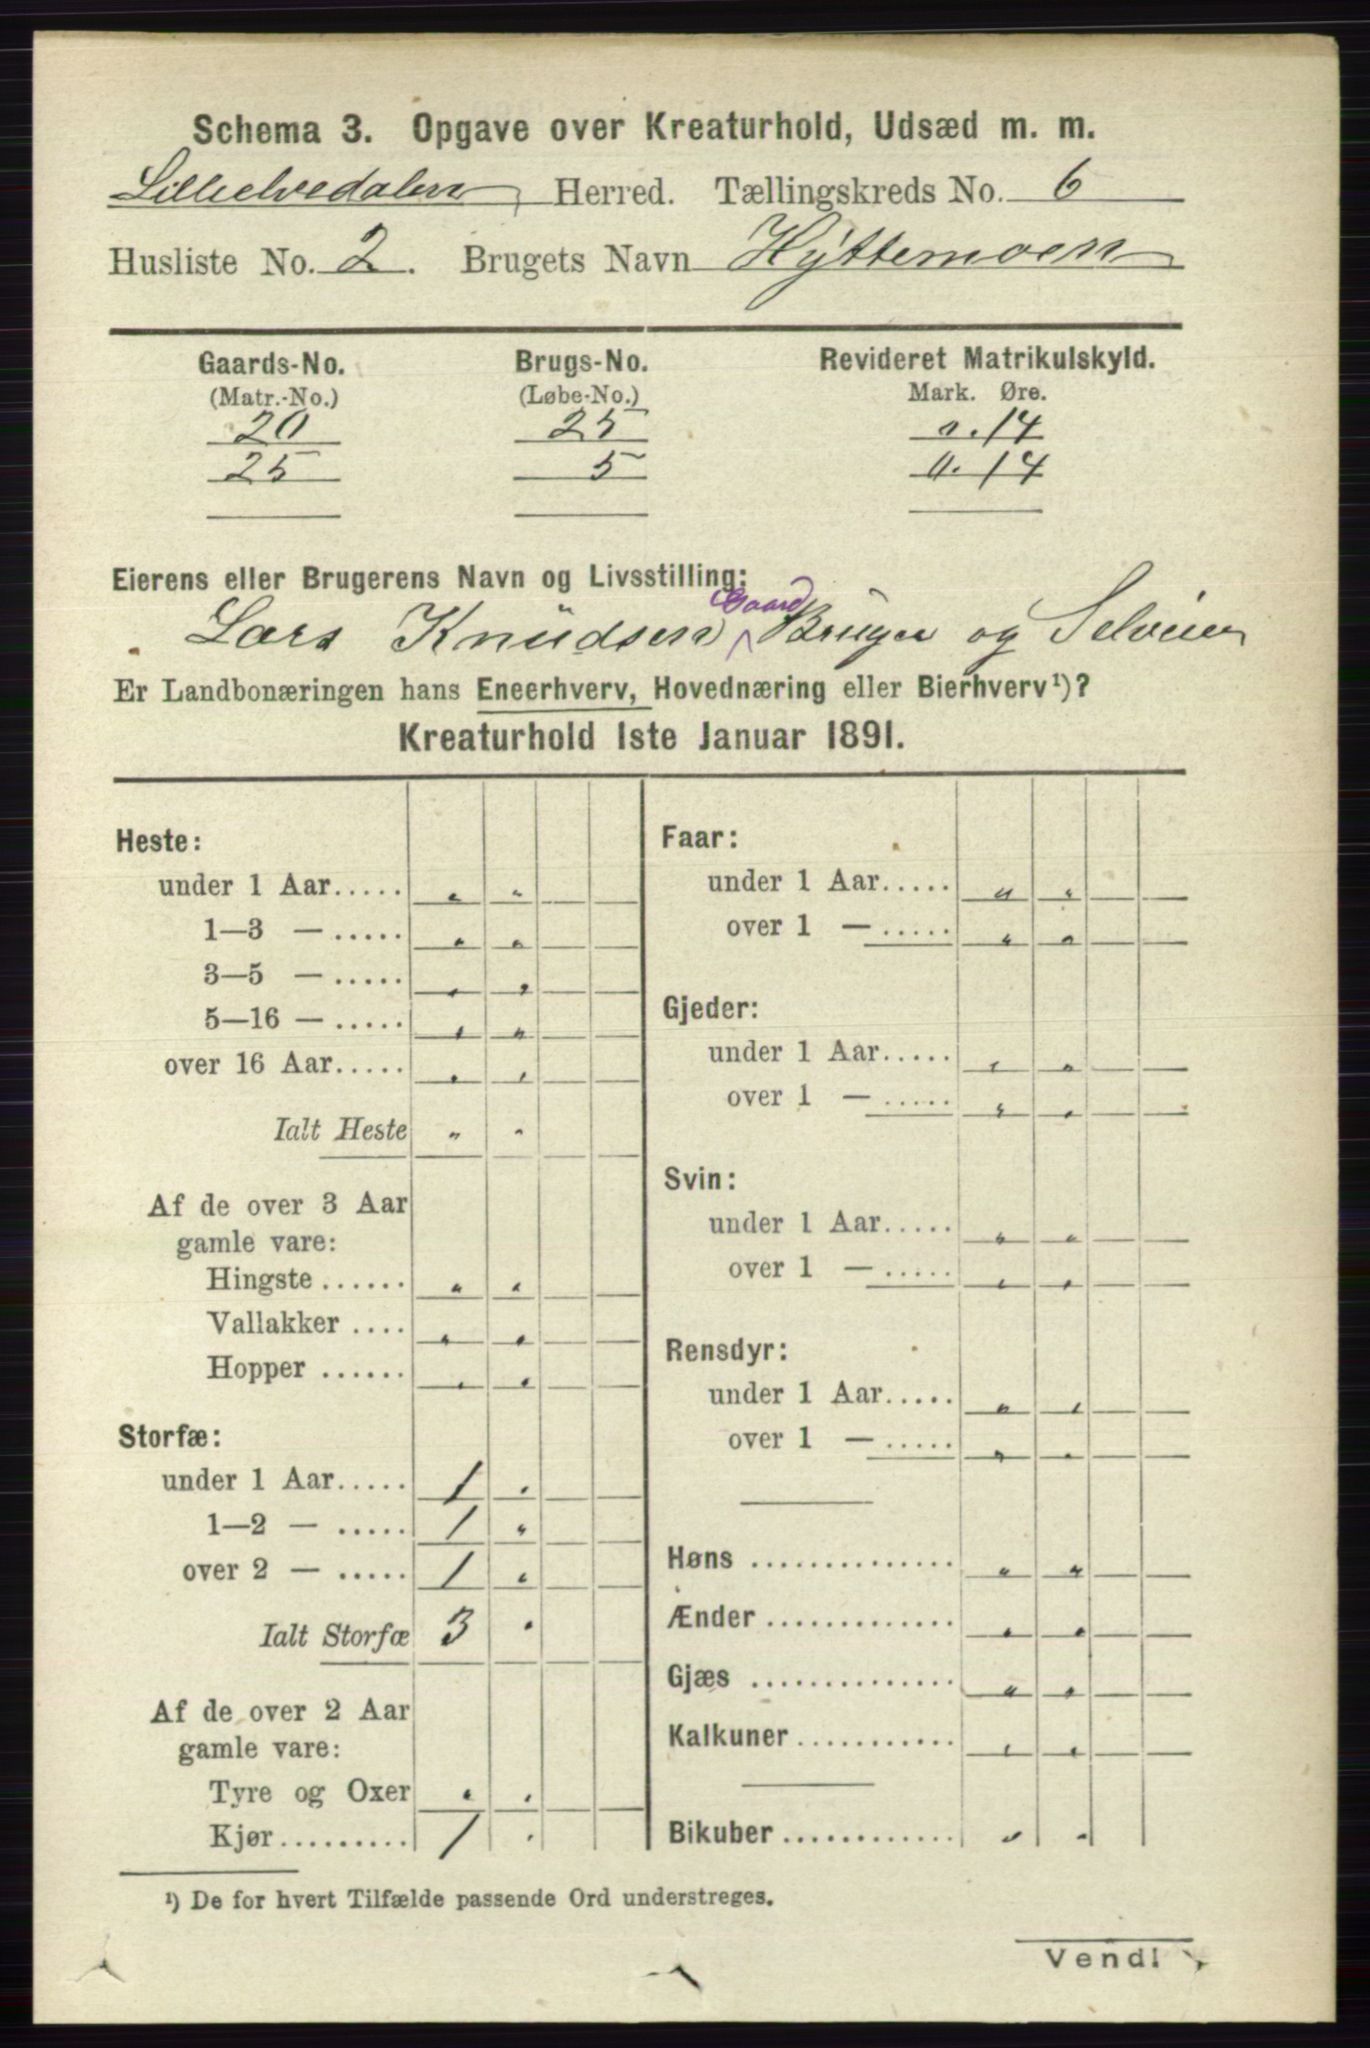 Schema 3. Opgave over Kreaturhold, Udsæd m. m.
Lilleelvedalen Herred. Tællingskreds No. 6
Husliste No. 2. Brugets Navn Hyttemoen
Gaards-No. Brugs-No. Revideret Matrikulskyld.
(Matr.-No.) (Løbe-No.) Mark. Øre.
20 25 0.14
25 5 0.14
Eierens eller Brugerens Navn og Livsstilling:
Gaard
Lars Knüdsen Bruger og Selveier
Er Landbonæringen hans Eneerhverv, Hovednæring eller Bierhverv¹)?
Kreaturhold 1ste Januar 1891.
Heste:
under 1 Aar..... " "
1—3 — ..... " "
3—5 — ..... " "
5—16 — ..... " "
over 16 Aar..... " "
Ialt Heste " "
Af de over 3 Aar
gamle vare:
Hingste ...... " "
Vallakker .... " "
Hopper ...... " "
Storfæ:
under 1 Aar..... 1 "
1—2 — ..... 1 "
over 2 — ..... 1 "
Ialt Storfæ 3 "
Af de over 2 Aar
gamle vare:
Tyre og Oxer " "
Kjør......... 1 "
Faar:
under 1 Aar..... " "
over 1 — ..... " "
Gjeder:
under 1 Aar..... " "
over 1 — ..... " "
Svin:
under 1 Aar..... " "
over 1 — ..... " "
Rensdyr:
under 1 Aar..... " "
over 1 — ..... " "
Høns .............. " "
Ænder ............. " "
Gjæs .............. " "
Kalkuner ........... " "
Bikuber ............ " "
¹) De for hvert Tilfælde passende Ord understreges.
Vend!